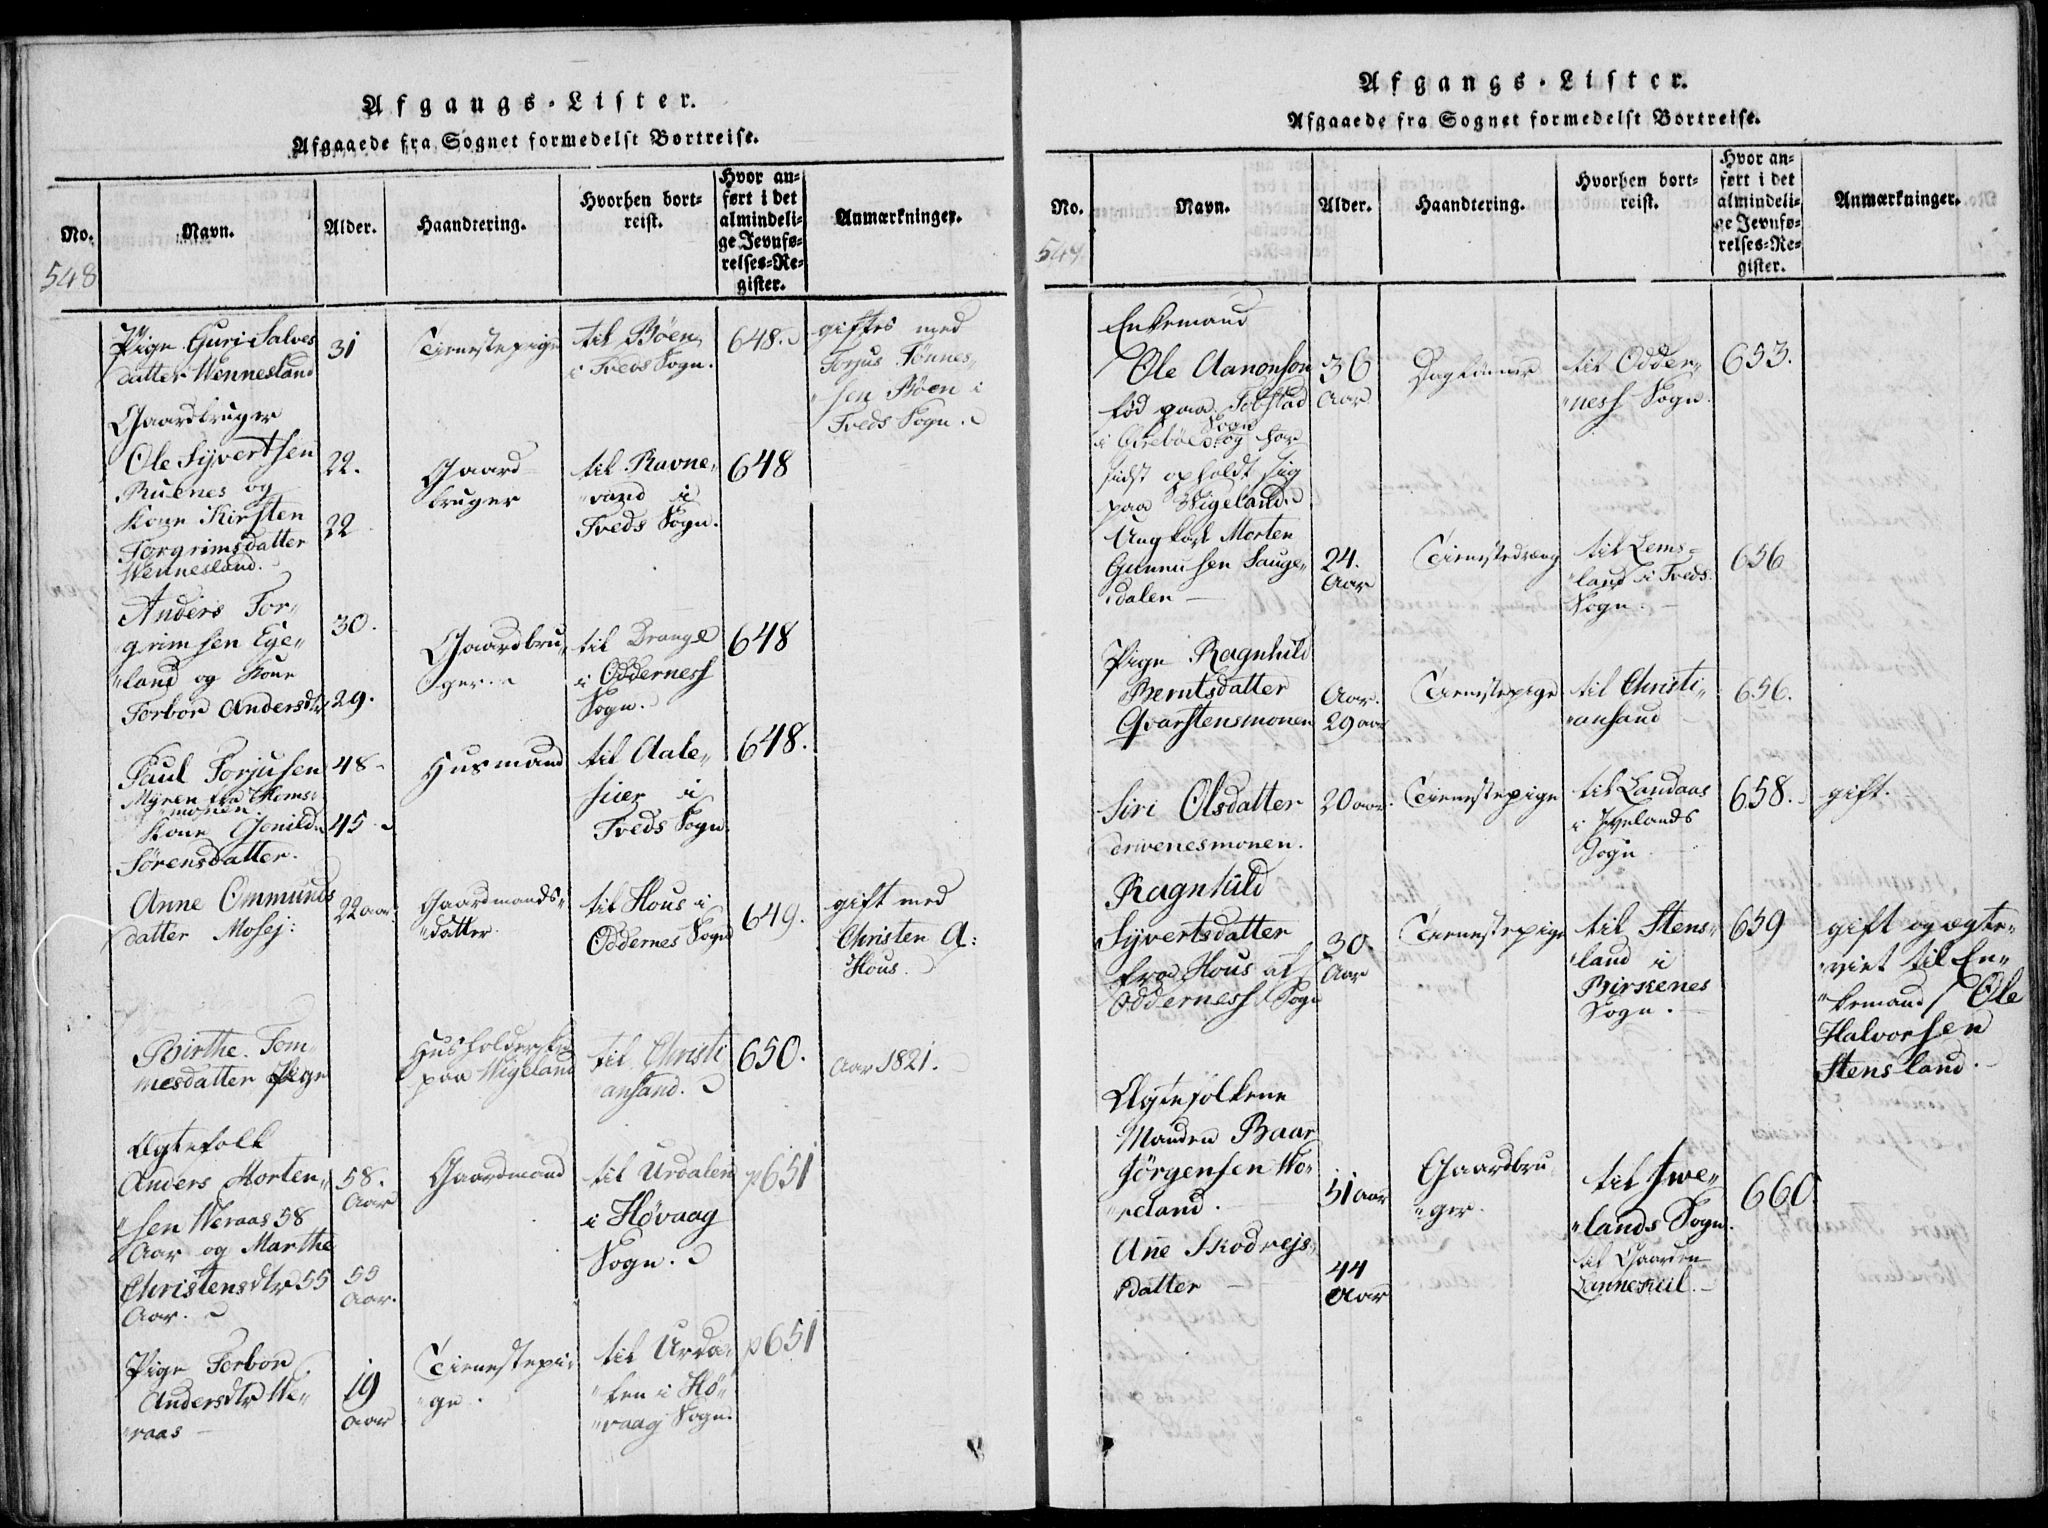 Afgangs-Lister.
Afgaaede fra Sognet formedelst Bortreise.
No.
Navn.
Alder.
Haandtering.
Hvorhen bort-
reist.
Hvor an-
ført i det
almindeli-
ge Jevnfø-
relses-Re-
gister.
Anmærkninger.
548
Pige Guri Salves
datter Wennesland
31
Tienestepige
til Böen
i Tveds Sogn.
648.
giftes med
Torjus Tönnes
sen Böen i
Tveds Sogn.
Gaardbruger
Ole Syvertsen
Ruenes og
Kone Kirsten
Torgrimsdatter
Wennesland.
22.
22
Gaard-
bruger
til Ravne-
vand i
Tveds Sogn.
648
Anders Tor-
grimsen Ege-
land og Kone
Torbor Andersdtr
30.
29.
Gaardbru-
ger.
til Drange
i Oddernesh
Sogn.
648
Paul Torjusen
Myren fra Homs-
monen
Kone Gonild
Sörensdatter.
48
45
Husmand
til Aale-
fiær i
Tveds Sogn.
648.
Anne Ommunds
datter Mosej:
22 aar.
Gaardmands-
datter
til Hous i
Oddernes Sogn
649.
gift med
Christen A:
Hous.
Birthe Tom-
mesdatter Pige
Husholderske
paa Wigeland
til Christi
ansand.
650.
Aar 1821.
Ægtefolk
Anders Morten-
sen Weraas 58
Aar og Marthe
Christensdtr 55
Aar.
58.
Aar
55
Aar.
Gaardmand
til Urdalen
i Hövaag
Sogn.
p651
Pige Torbor
Andersdtr We-
raas
19
aar
Tienestepi-
ge.
til Urda-
len i Hö-
vaag Sogn.
p651
Afgangs-Lister.
Afgaaede fra Sognet formedelst Bortreise.
No.
Navn.
Alder.
Haandtering.
Hvorhen bort-
reist.
Hvor an-
ført i det
almindeli-
ge Jevnfø-
relses-Re-
gister.
Anmærkninger.
Enkemand
Ole Aanonson
fød paa Tobstad
Sogn
og har
sidst opholdt sig
paa Wigeland
36
Aar
Daglönner
til Odder-
nesh Sogn.
653.
Ungkarl Morten
Gunnusen Sauge-
dalen
24.
Aar
Tienestedreng
til Lems-
land i Tveds
Sogn.
656
Pige Ragnhild
Berntsdatter
Qvarstensmonen
Aar.
29 aar
Tienestepige
til Christi-
ansand
656.
Siri Olsdatter
drivenesmonen.
20 aar.
Tienestepige
til Landaas
i Ivelands
Sogn
658.
gift.
Ragnhild
Syvertsdatter
fra Hous af
Oddernesh Sogn
30.
Aar
Tienestepige
til Stens-
land i
Birkenes
Sogn.
659
gift og ægte-
viet til En-
kemand Ole
Halvorsen
Stensland.
Ægtefolkene
Manden Baar
Jörgensen Wo-
reland.
Ane Skodvejs-
datter
51 aar
44
Aar
Gaardbru
ger.
til Iwe-
lands Sogn.
til Gaarden
660.